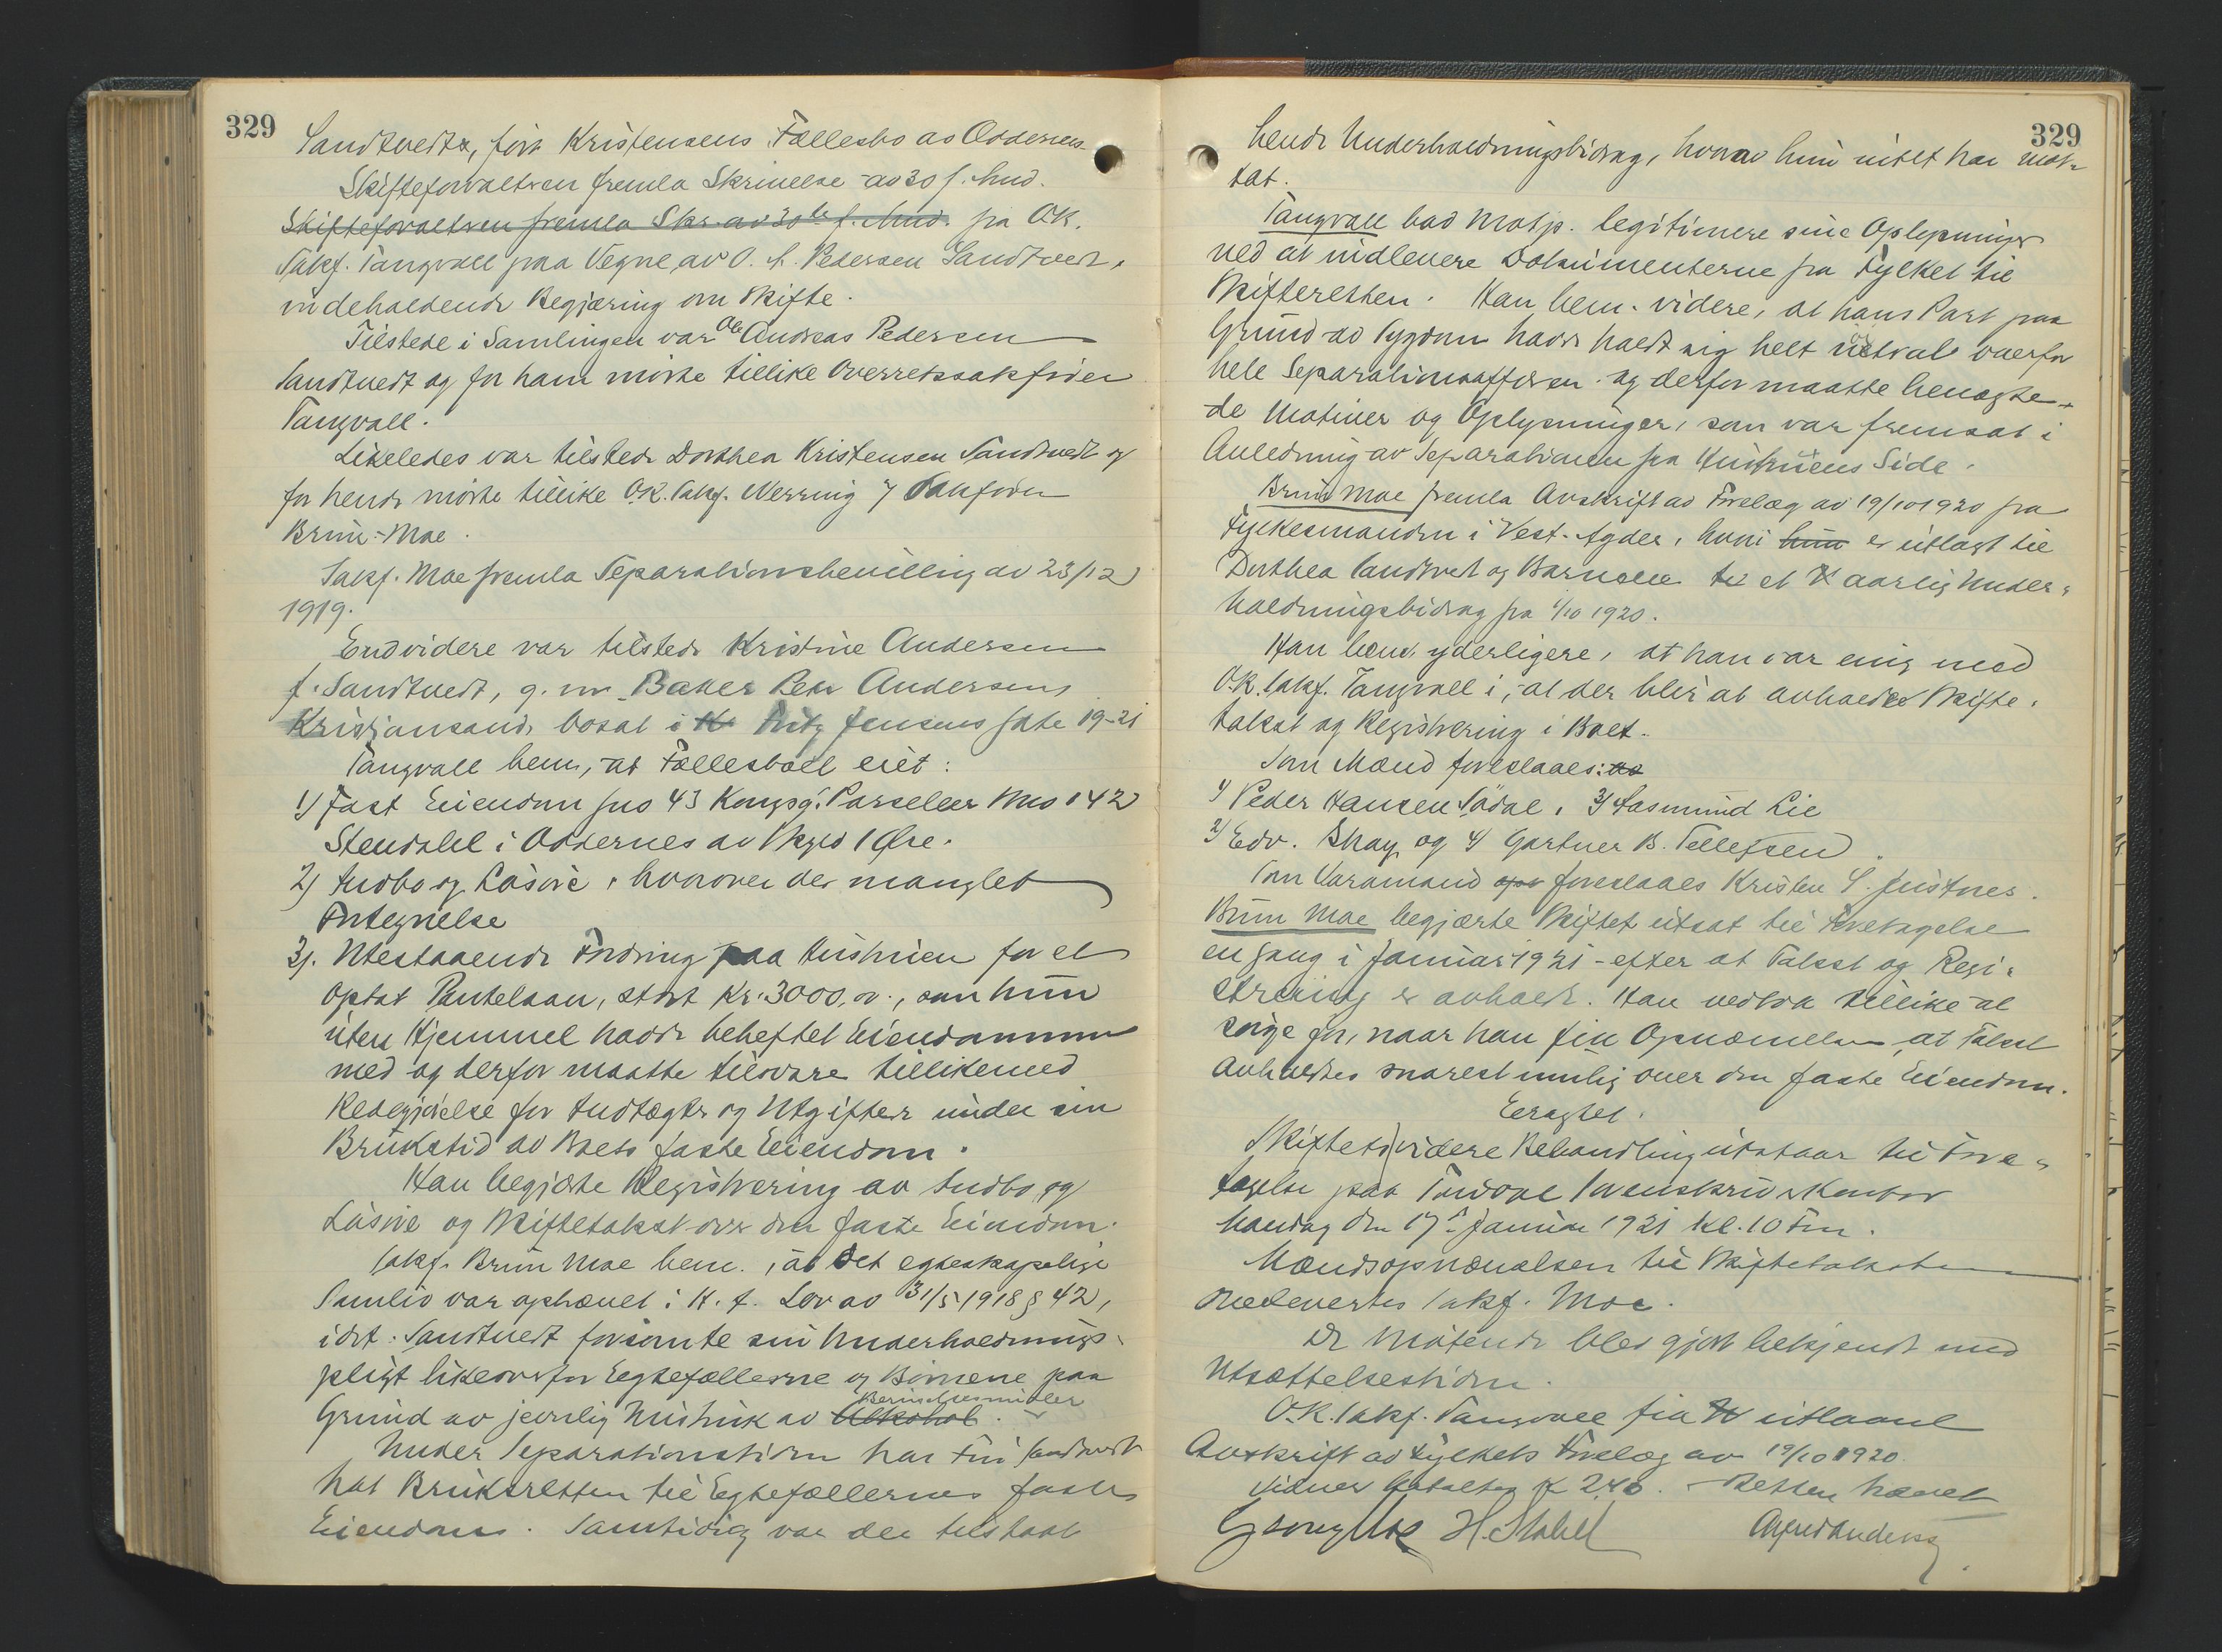 329
Sandtvedts, født Kristensens Fællesbo av Oddernes.
Skifteforvalteren fremla Skrivelse av 30 f. Mnd.
Skifteforvalteren fremla Skr. av 30te f. Mnd. fra OR.
Sakf. Tangvall paa Vegne av O. A. Pedersen Sandtvedt,
indeholdende Begjæring om Skifte.
Tilstede i Samlingen var Ole Andreas Pedersen
Sandtvedt og for ham møtte tillike Overretssakfører
Tangvall.
Likeledes var tilstede Dorthea Kristensen Sandtvedt og
for hende møtte tillike O.R. Sakf. Nerring v/ Sakfører
Brun-Moe.
Sakf. Moe fremla Separationsbevilling av 23/12
1919.
Endvidere var tilstede Kristine Andersen
f. Sandtvedt, g. m. Baker Peter Andersens
Kristiansand, bosat i K Fritz Jensens Gate 19-21
Tangvall bem., at Fællesboet eiet:
1) Fast Eiendom gno 43 Kongsg. Parseller Bno 142
Stendalel i Oddernes av Skyld 1 Øre.
2) Indbo og Løsøre, hvorover der manglet
Fortegnelse
3). Utestaaende Fordring paa Hustruen for et
optat Pantelaan, stort Kr. 3000,00., som hun
uten Hjemmel hadde beheftet Eiendommen
med og derfor maatte tilsvare tillikemed
Redegjørelse for Indtægter og Utgifter under sin
Brukstid av Boets faste Eiendom.
Han begjærte Registrering av Indbo og
Løsøre og Skiftetakst over den faste Eiendom.
Sakf. Brun Moe bem., at det egteskapelige
Samliv var ophævet i H. t. Lov av 31/5 1918 § 42,
idet Sandtvedt forsømte sin Underholdnings-
pligt likeoverfor Egtefællerne og Børnene paa
Grund av jevnlig Misbruk av Alkohol. Beruselsesmidler
Under Separationstiden har Fru Sandtvedt
hat Bruksretten til Egtefællernes faste
Eiendom. Samtidig var der tilstaat
329
hende Underholdningsbidrag, hvorav hun intet har mot-
tat.
Tangvall bad Motp. legitimere sine Oplysninger
ved at indlevere Dokumenterne fra Fylket til
Skifteretten. Han bem. videre, at hans Part paa
Grund av Sygdom hadde holdt sig helt nøtral overfor
hele Separationsaffæren og derfor maatte benegte
de Motiver og Oplysninger, som var fremsat i
Anledning av Separationen fra Hustruens Side.
Brun Moe fremla Avskrift av Forelæg av 19/10 1920 fra
Fylkesmanden i Vest-Agder, hvori hun er utlagt til
Dorthea Sandtvet og Barnene til et K aarlig Under-
holdningsbidrag fra 1/10 1920.
Han bem. yderligere, at han var enig med
O.R. Sakf. Tangvall i, at der blir at avholde Skifte-
takst og Registrering i Boet.
Som Mænd foreslaaes: as
1) Peder Hansen Sødal, 3) Aasmund Lie
2) Edv. Skay og 4) Gartner B. Tellefsen.
Som Varamand opn foreslaaes Kristen S. Justnes.
Brun Moe begjærte Skiftet utsat til Foretagelse
engang i Januar 1921 - efter at Takst og Regi-
strering er avholdt. Han vedtok tillike at
sørge for, naar han fik Opnævnelsen, at Takst
avholdtes snarest mulig over den faste Eiendom.
Eragtet.
Skiftets videre Behandling utstaar til Fore-
tagelse paa Torridal Sorenskriverkontor
Mandag den 17de Januar 1921 kl. 10 Fm.
Mandsopnævnelsen til Skiftetaksten
medlevertes Sakf. Moe.
De møtende blev gjort bekjendt med
Utsættelsestiden.
O.R. Sakf. Tangvall fik K utlaant
Avskrift av Fylkets Forelæg av 19/10 1920.
Vidner betaltes K 2.40. - Retten hævet
Georg Moe H. Stabel Alfred Anderssen